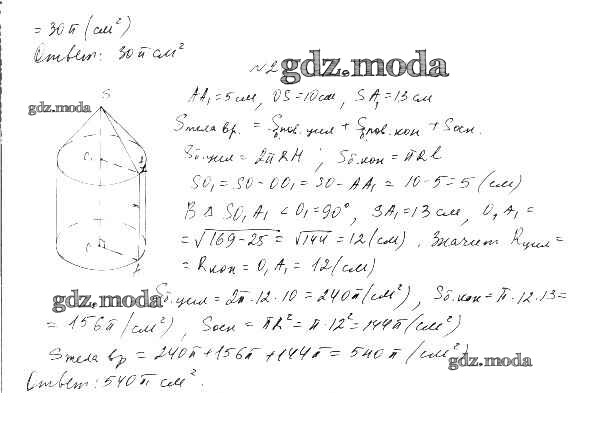 = 30π (см²)
Ответ: 30π см²
№2 gdz.moda
AA₁ = 5 см, OS = 10 см, SA₁ = 13 см
gdz.moda S
Sтела вр. = Sб пов. цил + Sб пов. кон + Sосн.
Sб.цил = 2πRH ; Sб.кон = πRl
SO₁ = SO - OO₁ = SO - AA₁ = 10 - 5 = 5 (см)
В Δ SO₁A₁ ∠O₁ = 90°, SA₁ = 13 см, O₁A₁ =
= √169-25 = √144 = 12 (см). Значит Rцил =
= Rкон = O₁A₁ = 12 (см)
gdz.moda Sб.цил = 2π · 12 · 10 = 240π (см²), Sб.кон = π · 12 · 13 =
= 156π (см²), Sосн = πR² = π · 12² = 144π (см²)
Sтела вр = 240π + 156π + 144π = 540π (см²)
gdz.moda
Ответ: 540π см².